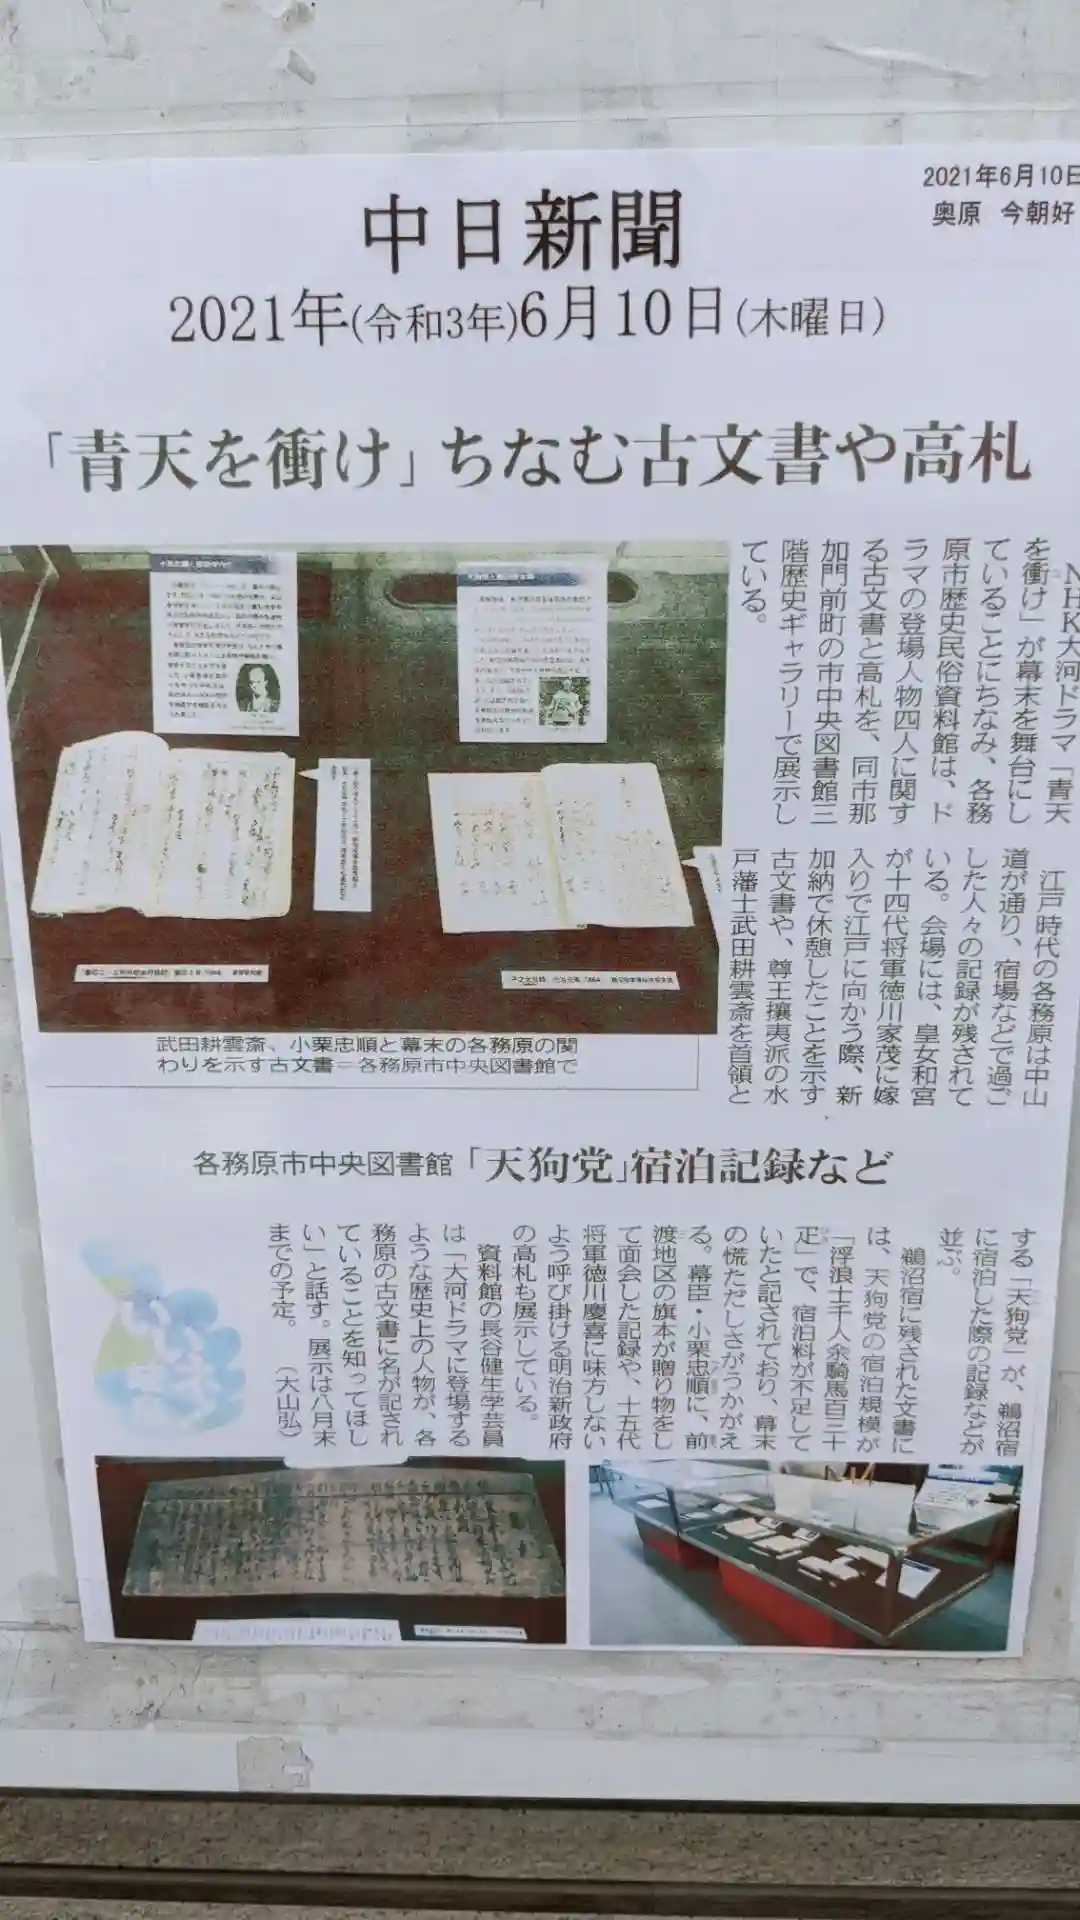 2021年6月10日
奥原 今朝好
中日新聞
2021年(令和3年)6月10日(木曜日)
「青天を衝け」ちなむ古文書や高札
NHK大河ドラマ「青天
を衝け」が幕末を舞台にし
ていることにちなみ、各務
原市歴史民俗資料館は、ド
ラマの登場人物四人に関す
る古文書と高札を、同市那
加門前町の市中央図書館三
階歴史ギャラリーで展示し
ている。
江戸時代の各務原は中山
道が通り、宿場などで過ご
した人々の記録が残されて
いる。会場には、皇女和宮
が十四代将軍徳川家茂に嫁
入りで江戸に向かう際、新
加納で休憩したことを示す
古文書や、尊王攘夷派の水
戸藩士武田耕雲斎を首領と
武田耕雲斎、小栗忠順と幕末の各務原の関
わりを示す古文書=各務原市中央図書館で
各務原市中央図書館「天狗党」宿泊記録など
する「天狗党」が、鵜沼宿
に宿泊した際の記録などが
並ぶ。
鵜沼宿に残された文書に
は、天狗党の宿泊規模が
「浮浪士千人余騎馬百三十
疋」で、宿泊料が不足して
いたと記されており、幕末
の慌ただしさがうかがえ
る。幕臣・小栗忠順に、前
渡地区の旗本が贈り物をし
て面会した記録や、十五代
将軍徳川慶喜に味方しない
よう呼び掛ける明治新政府
の高札も展示している。
資料館の長谷健生学芸員
は「大河ドラマに登場する
ような歴史上の人物が、各
務原の古文書に名が記され
ていることを知ってほし
い」と話す。展示は八月末
までの予定。 (大山弘)